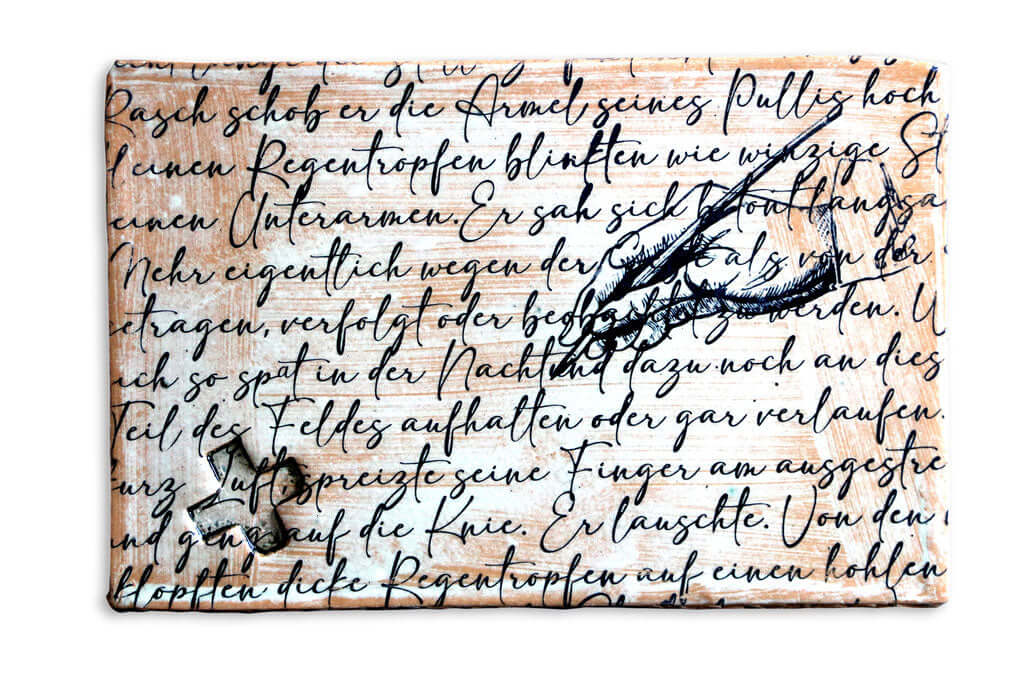 Rasch schob er die Ärmel seines Pullis hoch
kleinen Regentropfen blinkten wie winzige St
einen Unterarmen. Er sah sich betont langsa
Mehr eigentlich wegen der als von der
getragen, verfolgt oder beobachtet zu werden. W
sich so spät in der Nacht und dazu noch an dies
Teil des Feldes aufhalten oder gar verlaufen.
kurz Luft, spreizte seine Finger am ausgestre
und ging auf die Knie. Er lauschte. Von den
klopften dicke Regentropfen auf einen hohlen